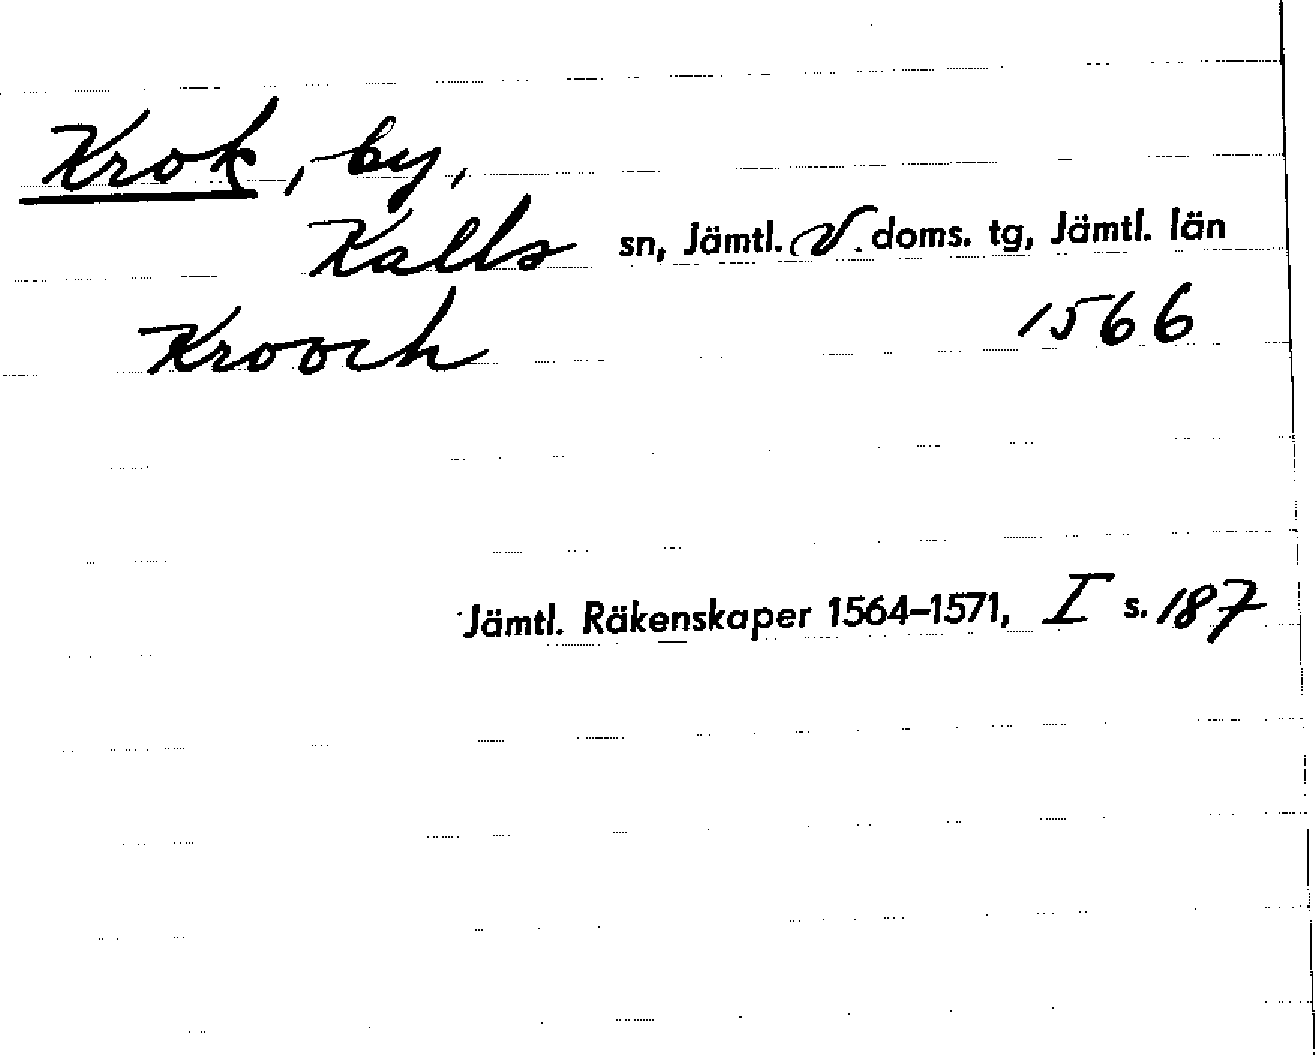 Krok, by,
Kalls sn, Jämtl. V. doms. tg, Jämtl. län
Krooch 1566
Jämtl. Räkenskaper 1564–1571, I s. 187